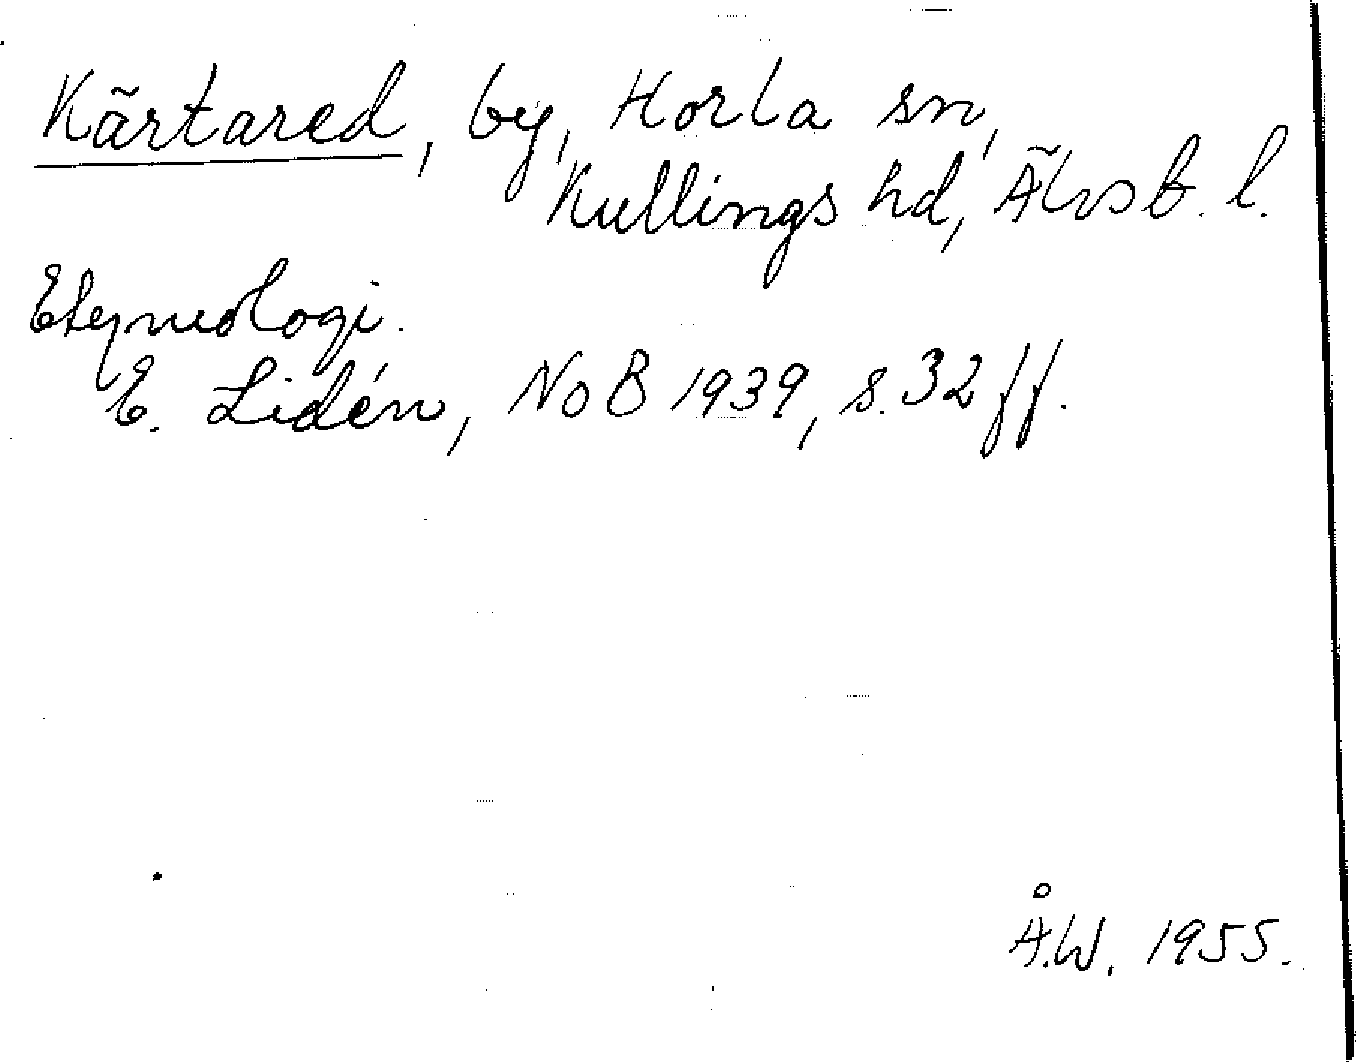 Kärtared, by, Horla sn,
Kullings hd, Älvsb. l.
Etymologi.
E. Lidén, NoB 1939, s. 32 ff.
Å.W. 1955.